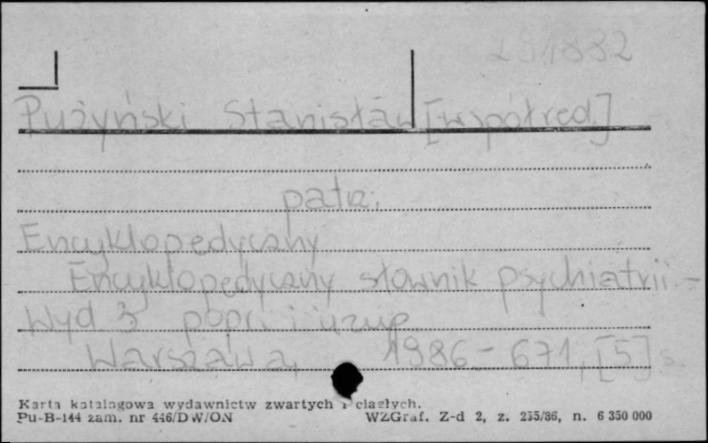 Pużyński Stanisław [współred.]
patrz:
Encyklopedyczny
Encyklopedyczny słownik psychiatrii. -
Wyd 3 popr. i uzup.
Warszawa, 1986 - 671, [5] s.
Karta katalogowa wydawnictw zwartych i ciągłych.
Pu-B-144 zam. nr 446/DW/ON WZGraf. Z-d 2, z. 235/86, n. 6 350 000